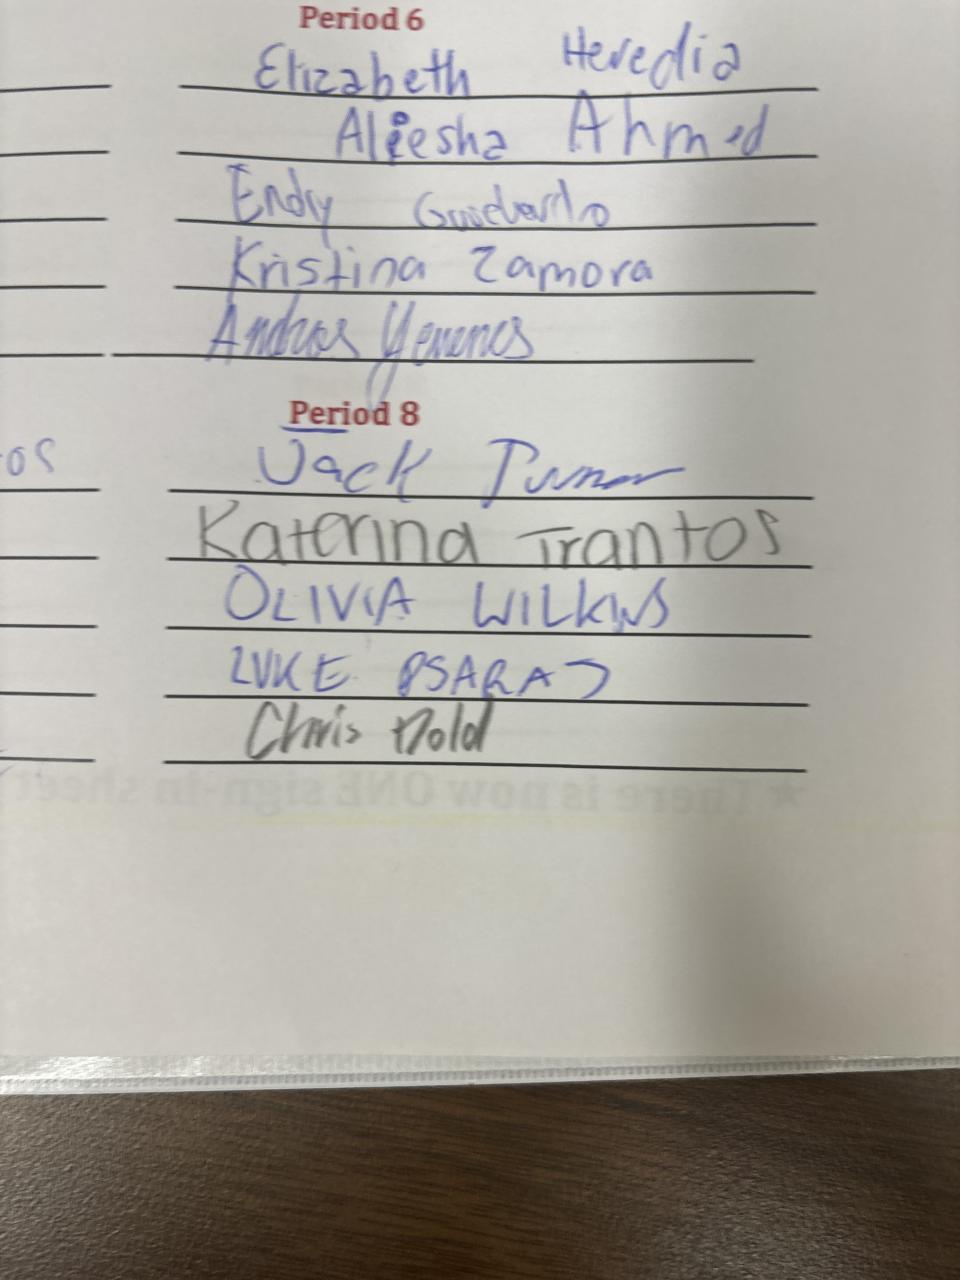 Period 6
Elizabeth Heredia
Aleesha Ahmed
Endy
Kristina Zamora
Andres Yemenes
Period 8
os
Jack Turner
Katerina Trantos
OLIVIA WILKINS
LUKE PSARAS
Chris Dold
★ There is now ONE sign-in sheet